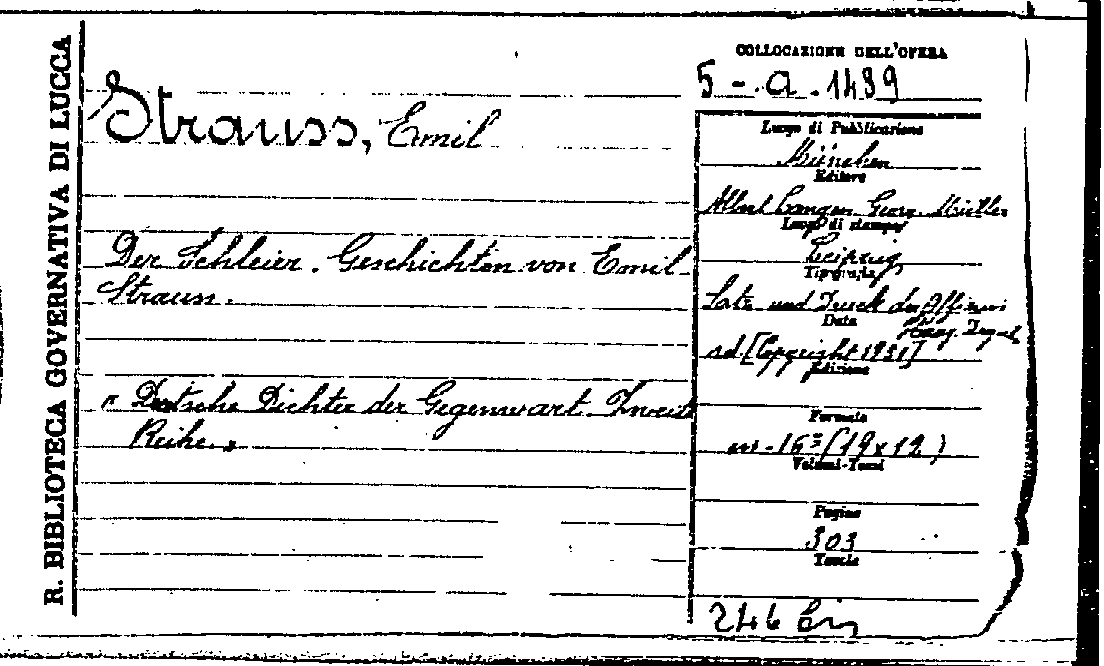 R. BIBLIOTECA GOVERNATIVA DI LUCCA
COLLOCAZIONE DELL'OPERA
5 - a. 1439
Strauss, Emil
Der Schleier. Geschichten von Emil
Strauss.
" Deutsche Dichter der Gegenwart. Zweite
Reihe. "
Luogo di Pubblicazione
München
Editore
Albert Langen Georg Müller
Luogo di stampa
Leipzig
Tipografia
Satz und Druck der
Data
sd [Copyright 1931]
Edizione
Formato
in-16º (19 x 12)
Volumi-Tomi
Pagine
303
Tavole
246